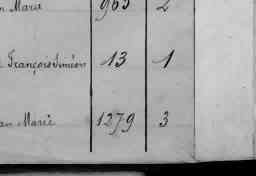 Marie 965 2
François Siméon 13 1
an Marie 1279 3